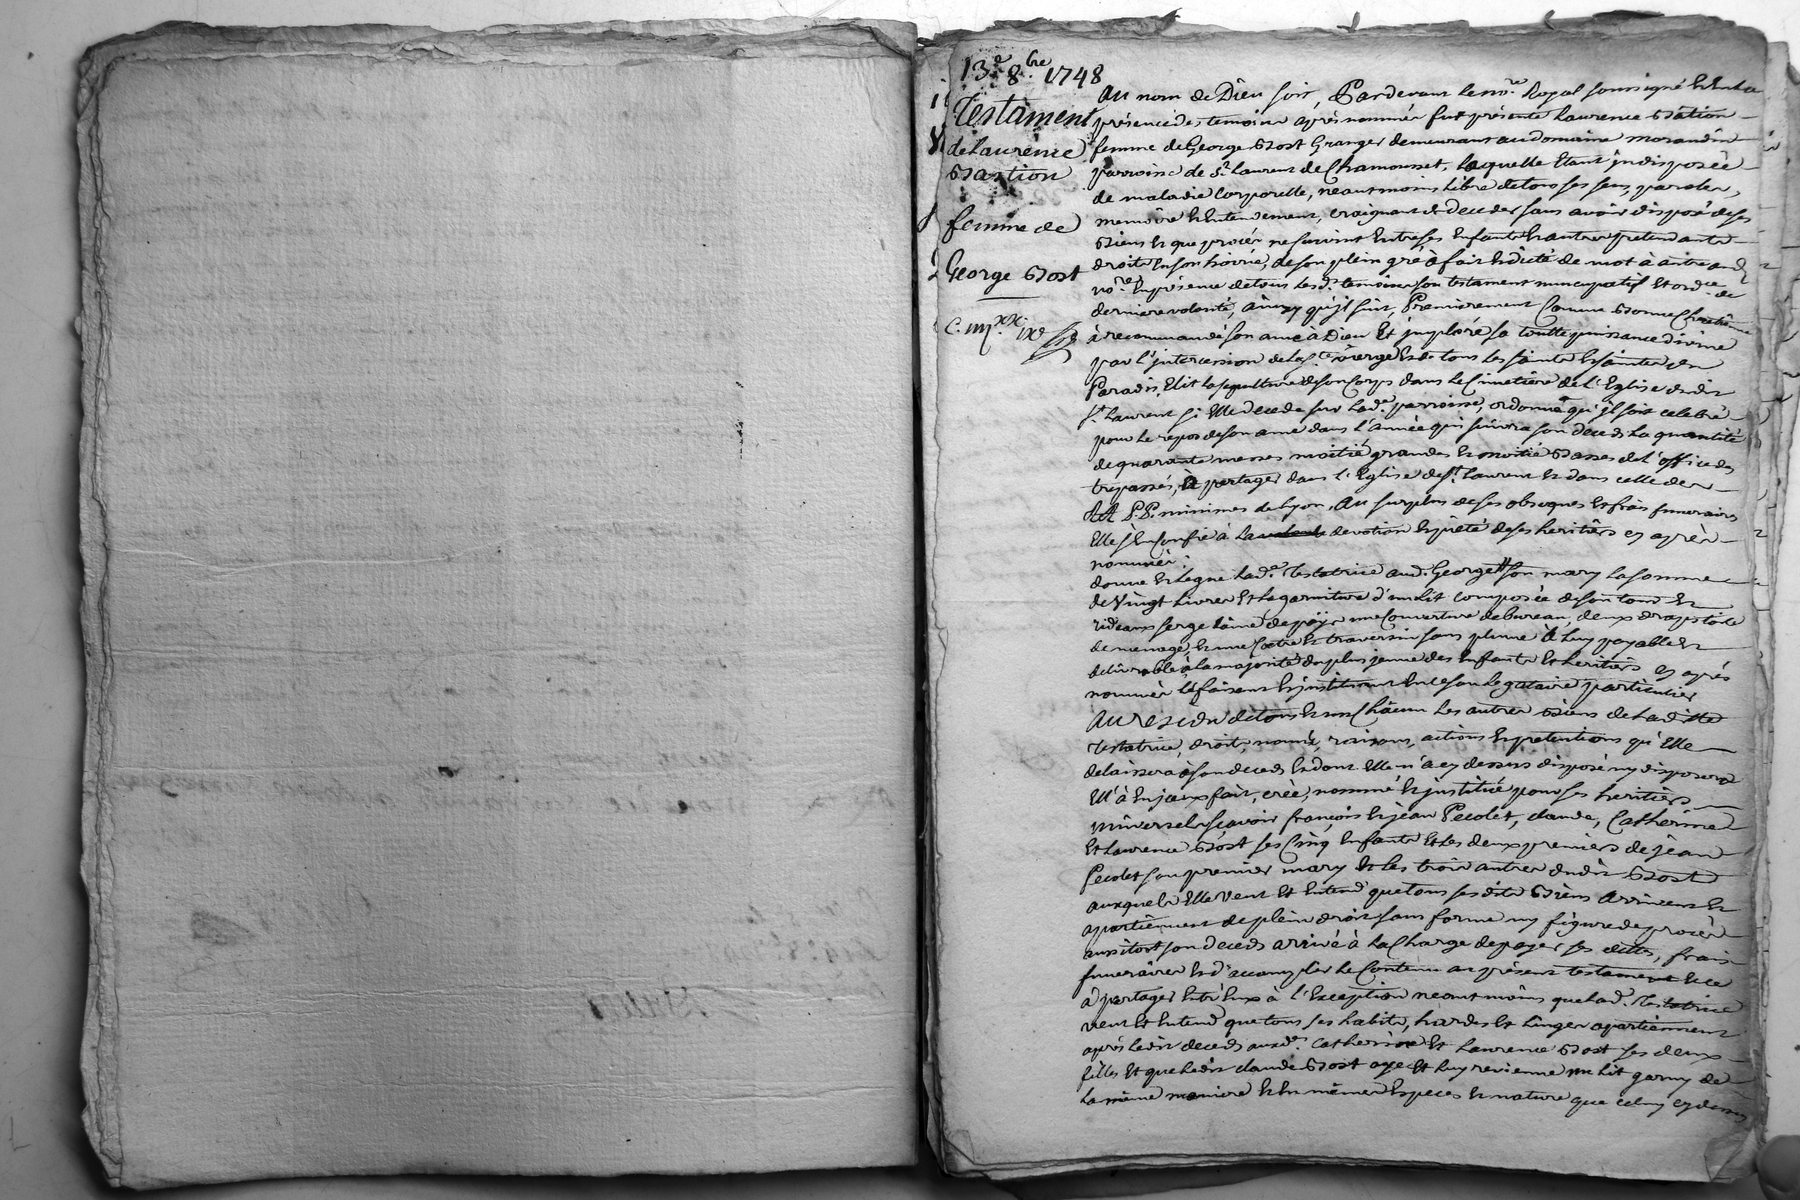 13e 8bre 1748
Testament
de Laurence
Bastion
femme de
George Bost
C. IIIIxx IX s
Au nom de Dieu soit, Pardevant le nore Royal soussigné Et En la
présence des temoins après nommés fut présente Laurence Bâtion
femme de George Bost Granger demeurant au domaine morandin
parroisse de St Laurent de Chamousset, laquelle Etant indisposée
de maladie Corporelle, neantmoins Libre de tous ses sens, paroles,
memoire Et Entendement, craignant de Deceder sans avoir disposé de ses
Biens Et que procés ne survint Entre ses Enfants Et autres pretendants
droits En son hoirie, de son plein gré à fait Et dicté de mot à autre aud.
nore En présence de tous Lesd. temoins son testament nuncupatif Et ordce de
derniere volonté, ainsy qu'il suit, Premierement Comme Bonne Chretienne
à recommandé son ame à Dieu Et imploré sa toutte puissance divine
par l'intercession de la ste vierge Et de tous Les saints Et saintes du
Paradis, Elit la sepulture de son Corps dans Le Cimetiere de l'Eglise dudit
St Laurent si Elle decede sur Lade parroisse, ordonne qu'il soit celebré
pour Le repos de son ame dans l'année qui suivra son deceds La quantité
de quarante messes moitié grandes Et moitié Basses de l'office des
trepassés, à partager dans l'Eglise de St Laurent Et dans celle des
RR P.P. minimes de Lyon, Au surplus de ses obseques Et frais funeraires
Elle s'En Confie à La devotion Et pieté de ses heritiers cy après
nommés.
donne Et Legue lade Testatrice aud. George son mary La somme
de Vingt Livres Et La garniture d'un Lit composée de son tour Et
rideaux serge laine de païs une Couverture de bureau, deux draps toile
de menage, Et une Coetre Et traversin sans plume à Luy payable Et
delivrable à La majorité du plus jeune des Enfants Et heritiers cy après
nommés le faisant Et instituant En ce son Legataire particulier
Au residu de tous Et un Châcun Les autres Biens de Laditte
Testatrice, droits, noms, raisons, actions Et pretentions qu'Elle
delaissera à son deceds Et dont Elle n'a cy dessus disposé ny disposera
Ell'à En iceux fait, créé, nommé Et institué pour ses heritiers
universels sçavoir françois Et jean Pecolet, claude, Catherine
Et Laurence Bost ses Cinq Enfants Et Les deux premiers de jean
Pecolet son premier mary Et Les trois autres dudit Bost
auxquels Elle Veut Et Entend que tous ses dits Biens arrivent Et
apartiennent de plein droit sans forme ny figure de procès
aussitost son deceds arrivé à La Charge de payer ses dettes, frais
funeraires Et d'accomplir Le Contenu au présent testament Et ce
à partager Entr'Eux à l'Exception neantmoins que lad. Testatrice
veut Et Entend que tous ses habits, hardes Et Linges apartiennent
après Ledit deceds auxdes Catherine Et Laurence Bost ses deux
filles Et que Ledit claude Bost aye Et Luy revienne un Lit garny de
La même maniere Et En mêmes Especes Et nature que celuy cy dessus